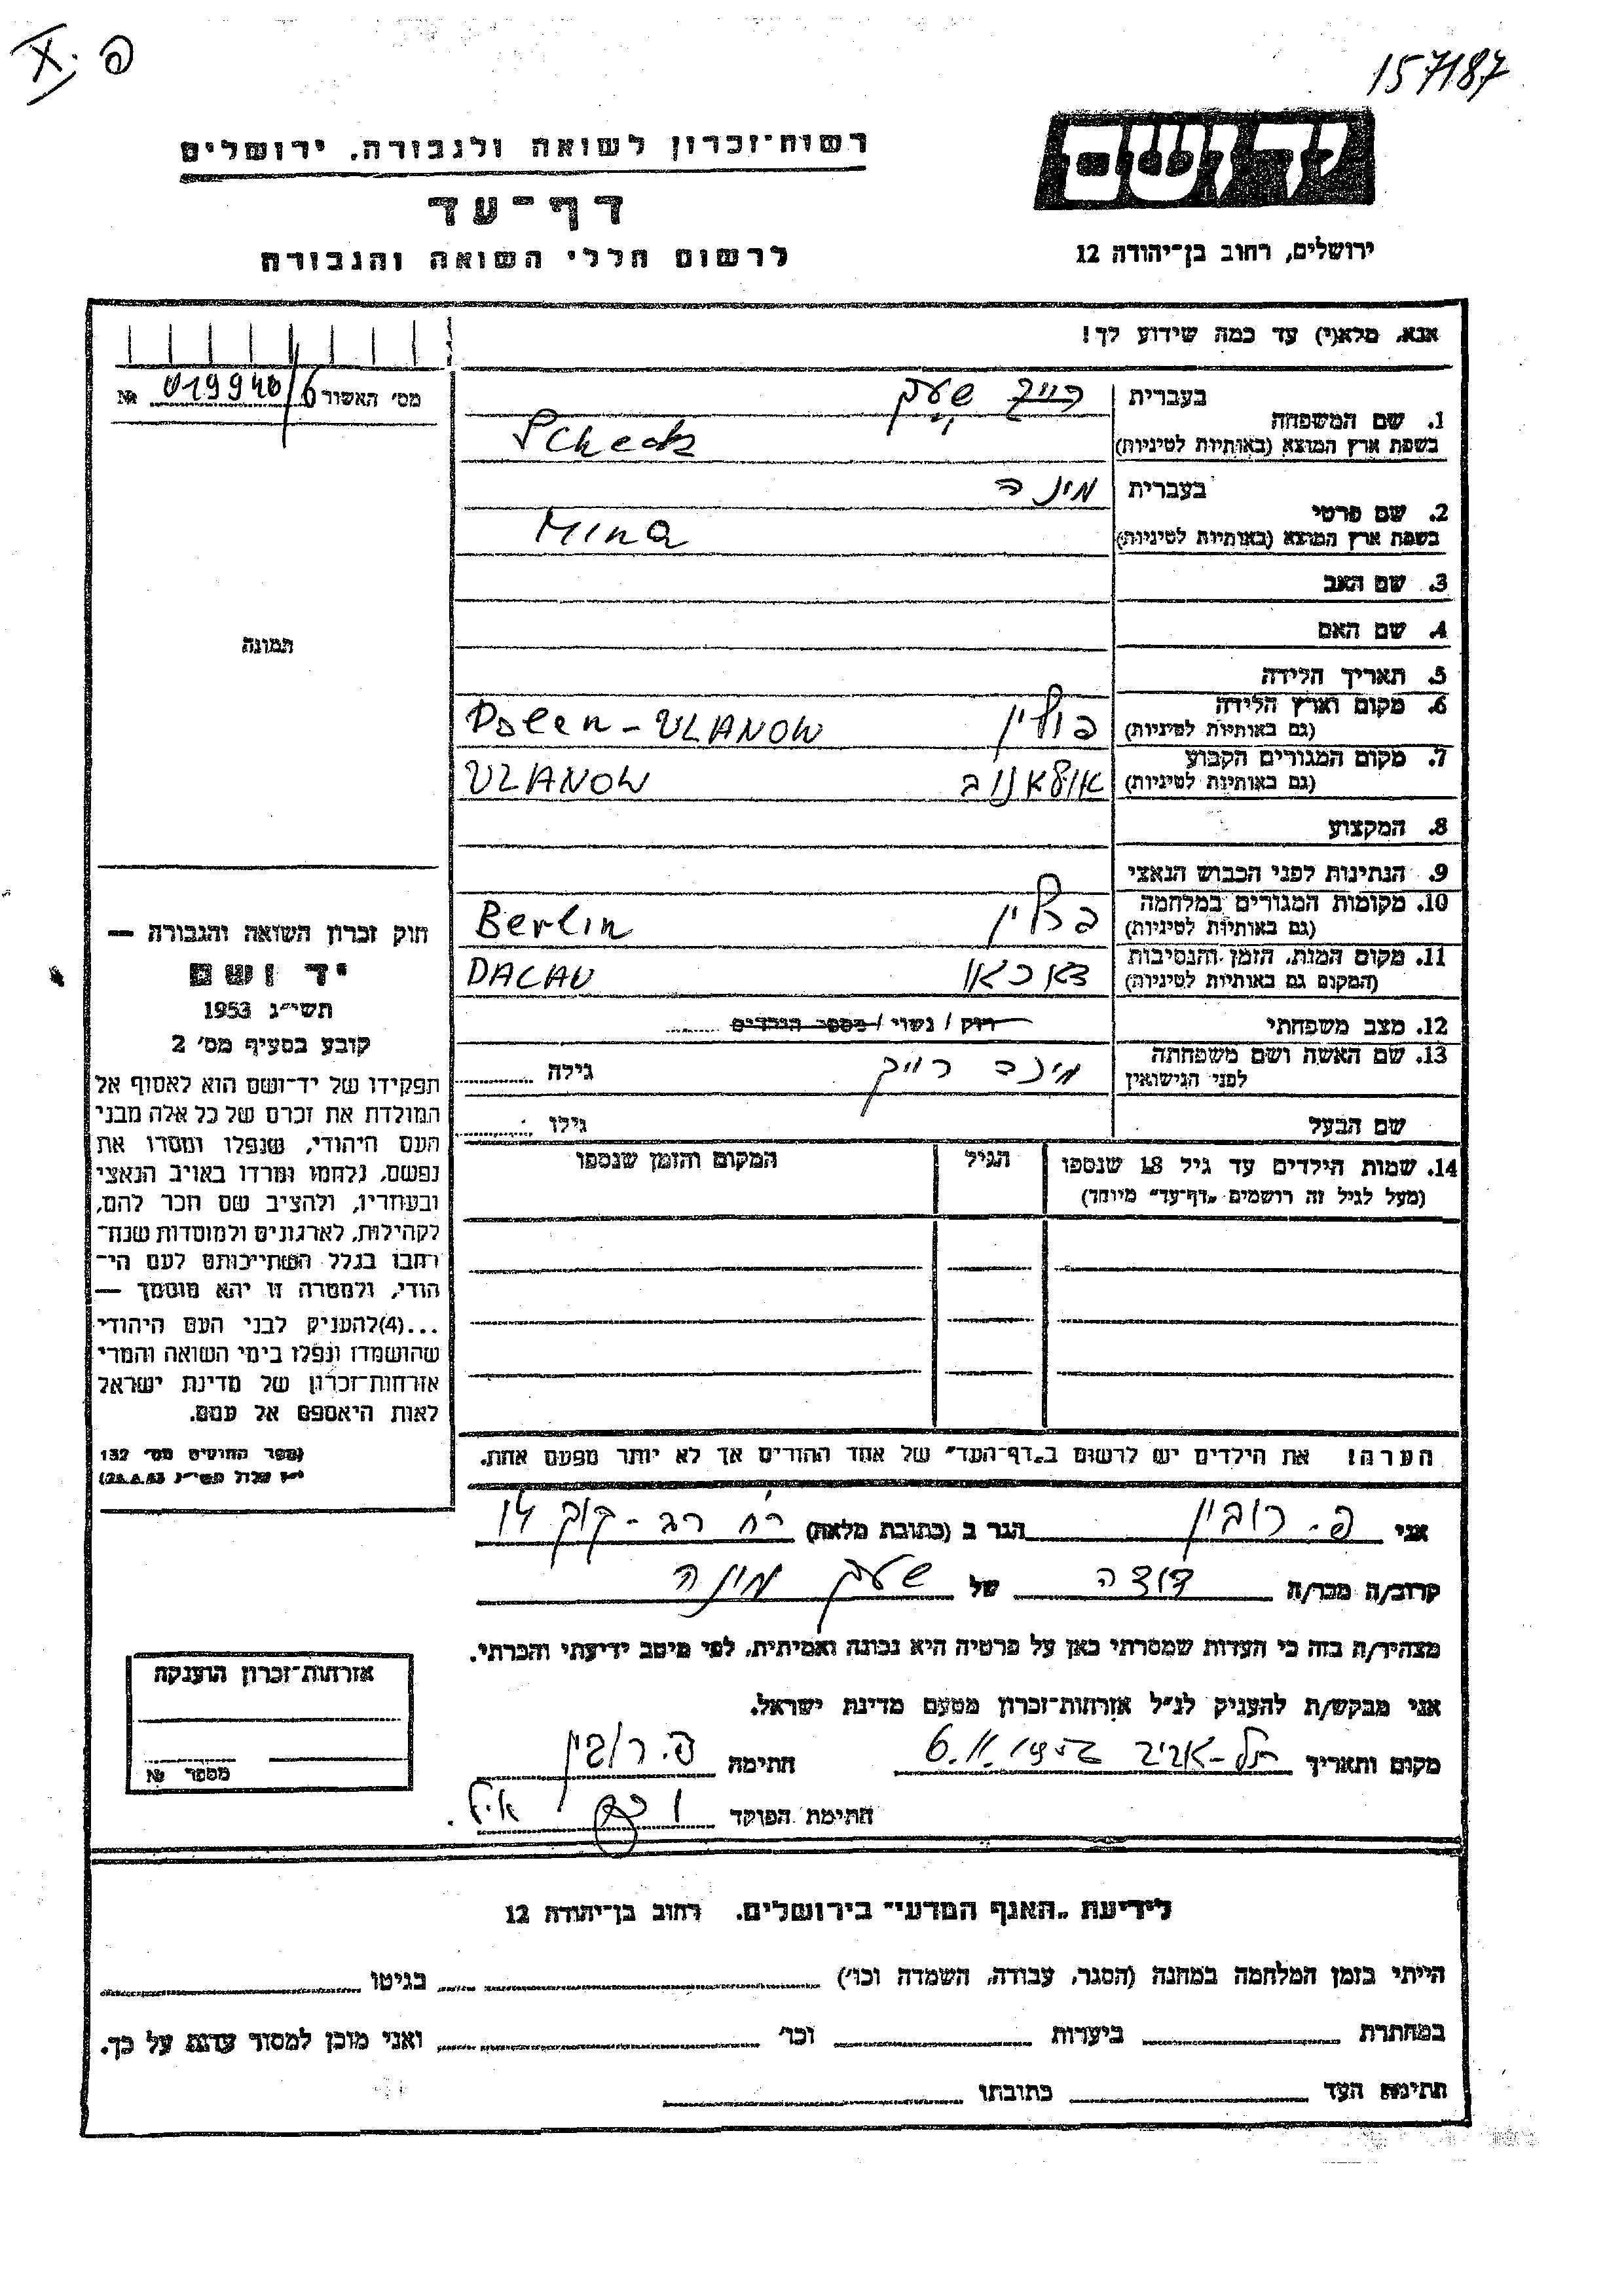 פ. X
157187
יד ושם
ירושלים, רחוב בן־יהודה 12
רשות־זכרון לשואה ולגבורה, ירושלים
דף־עד
לרשום חללי השואה והגבורה
אנא, מלא(י) עד כמה שידוע לך!
מס׳ האשור № 019940/6
תמונה
1. שם המשפחה
בעברית שעק
בשפת ארץ המוצא (באותיות לטיניות) Scheck
2. שם פרטי
בעברית מינה
בשפת ארץ המוצא (באותיות לטיניות) Mina
3. שם האב
4. שם האם
5. תאריך הלידה
6. מקום וארץ הלידה
(גם באותיות לטיניות) פולין Polen - ULANOW
7. מקום המגורים הקבוע
(גם באותיות לטיניות) אולאנוב ULANOW
8. המקצוע
9. הנתינות לפני הכבוש הנאצי
10. מקומות המגורים במלחמה
(גם באותיות לטיניות) ברלין Berlin
11. מקום המות, הזמן והנסיבות
(המקום גם באותיות לטיניות) דאכאו DACAU
12. מצב משפחתי רוק / נשוי / מספר הילדים
13. שם האשה ושם משפחתה
לפני הנישואין מינה גילה
שם הבעל גילו
14. שמות הילדים עד גיל 18 שנספו
(מעל לגיל זה רושמים „דף־עד״ מיוחד)
הגיל
המקום והזמן שנספו
הערה! את הילדים יש לרשום ב„דף־העד״ של אחד ההורים אך לא יותר מפעם אחת.
חוק זכרון השואה והגבורה —
יד ושם
תשי״ג 1953
קובע בסעיף מס׳ 2
תפקידו של יד־ושם הוא לאסוף אל
המולדת את זכרם של כל אלה מבני
העם היהודי, שנפלו ומסרו את
נפשם, נלחמו ומרדו באויב הנאצי
ובעוזריו, ולהציב שם וזכר להם,
לקהילות, לארגונים ולמוסדות שנח־
רבו בגלל השתייכותם לעם הי־
הודי, ולמטרה זו יהא מוסמך —
...(4) להעניק לבני העם היהודי
שהושמדו ונפלו בימי השואה והמרי
אזרחות־זכרון של מדינת ישראל
לאות היאספם אל עמם.
(ספר החוקים מס׳ 132
י״ז אלול תשי״ג 28.8.53)
אני פ. רובין הגר ב (כתובת מלאה) רח׳
קרוב/ה מכר/ה דודה של שעק מינה
מצהיר/ה בזה כי העדות שמסרתי כאן על פרטיה היא נכונה ואמיתית, לפי מיטב ידיעתי והכרתי.
אני מבקש/ת להעניק לנ״ל אזרחות־זכרון מטעם מדינת ישראל.
מקום ותאריך תל-אביב חתימה פ. רובין
חתימת הפוקד
אזרחות־זכרון הוענקה
מספר №
לידיעת „האגף המדעי״ בירושלים, רחוב בן־יהודה 12
הייתי בזמן המלחמה במחנה (הסגר, עבודה, השמדה וכו׳) בגיטו
במחתרת ביערות וכו׳ ואני מוכן למסור עדות על כך.
חתימת העד כתובתו